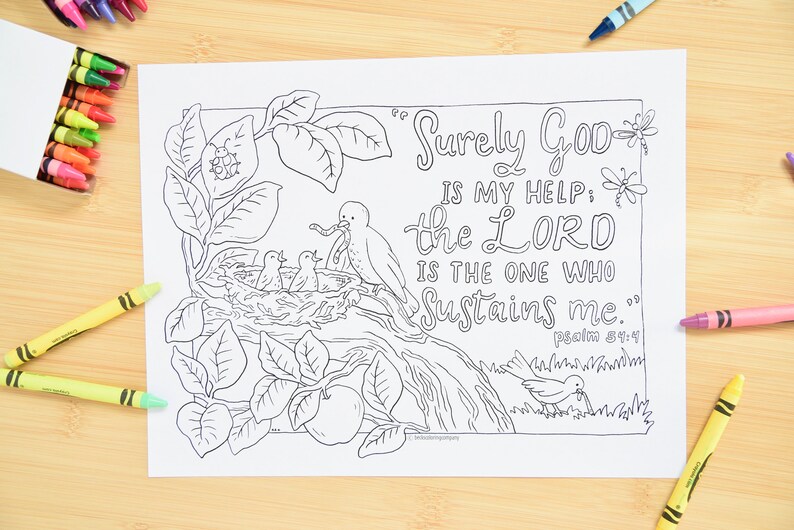 "Surely GOD
IS MY HELP;
the LORD
IS THE ONE WHO
Sustains me."
psalm 54:4